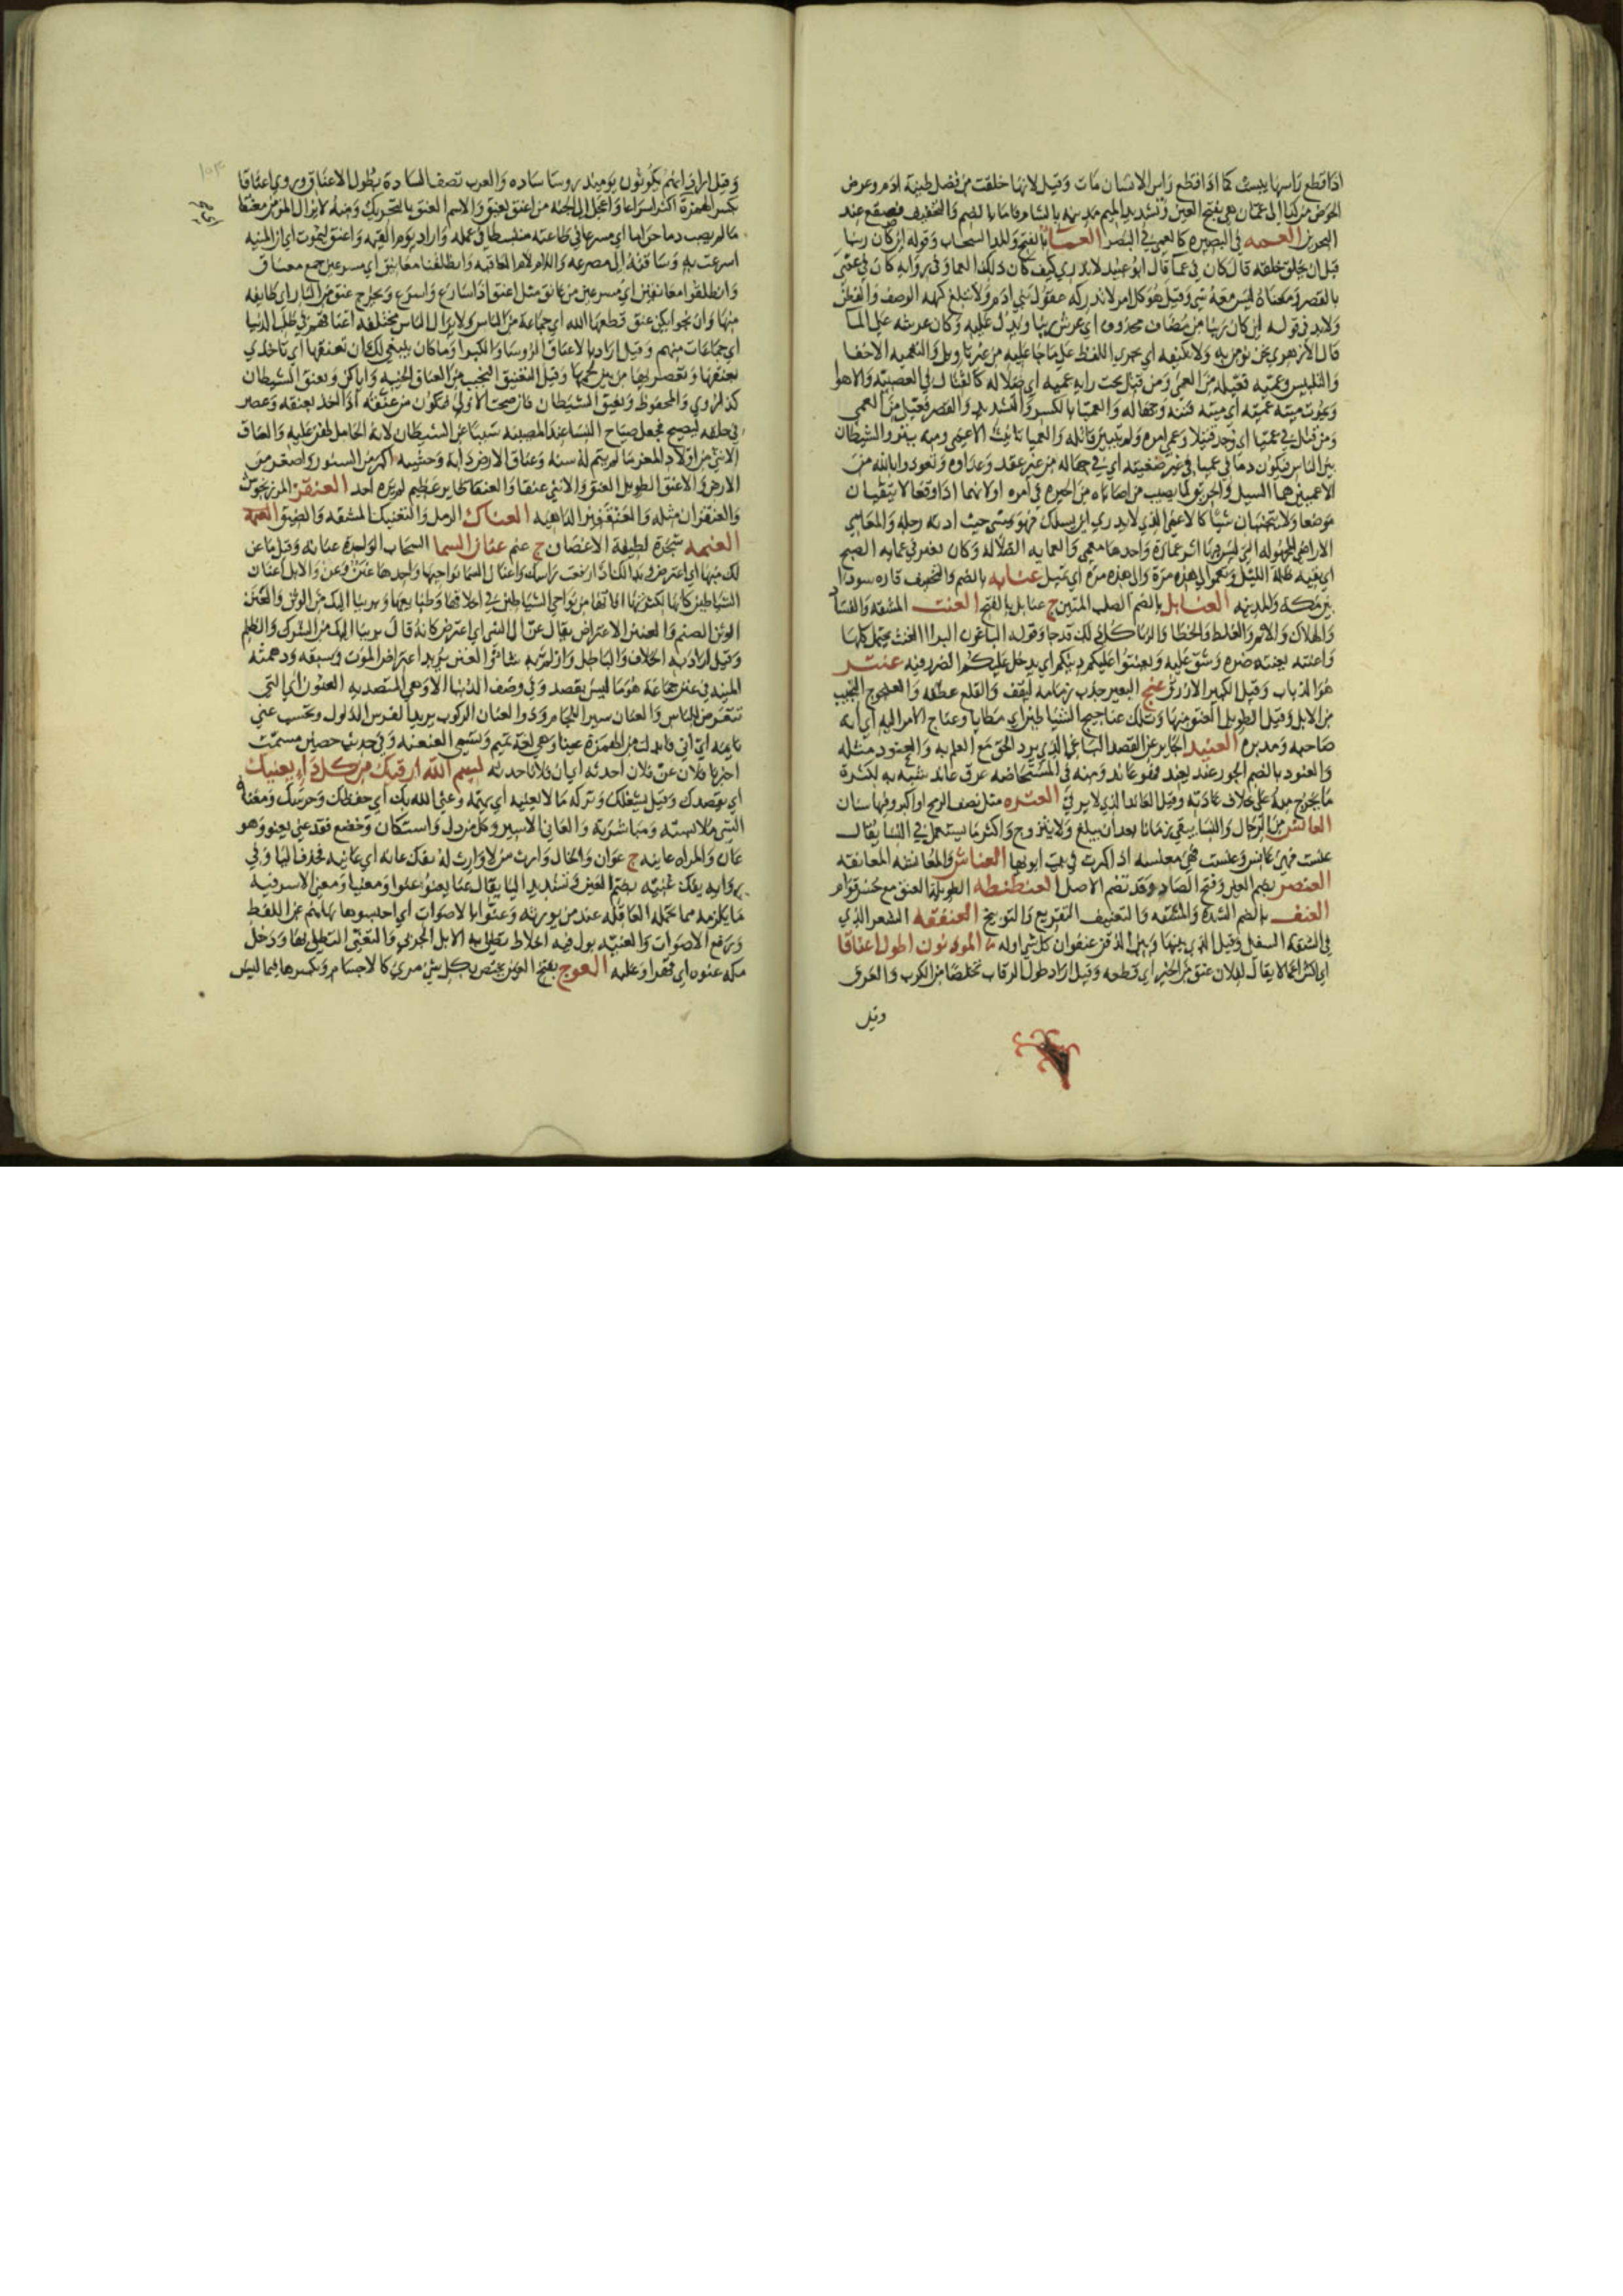 اذا قطع راسها يبست كما اذا قطع راس الانسان مات وقيل لانها خلقت من فضل طينة ادم وعرض
الحوض من كذا الى عمان هي بفتح العين وتشديد الميم مدينة بالشام فاما بالضم والتخفيف فصقع عند
البحرين العمه في البصيرة كالعمى في البصر العما بالفتح والمد السحاب وقوله اين كان ربنا
قبل ان يخلق خلقه قال كان في عما قال ابو عبيد لا ندري كيف كان ذلك العما وفي رواية كان في عمى
بالقصر ومعناه ليس معه شي وقيل هو كل امر لا تدركه عقول بني ادم ولا يبلغ كنهه الوصف والفطن
ولابد في قوله اين كان ربنا من مضاف محذوف اي عرش ربنا ويدل عليه وكان عرشه على الما
قال الازهري نحن نومن به ولا نكيفه اي يجري اللفظ على ما جا عليه من غير تاويل والتعميه الاخفا
والتلبيس وعميه فعيله من العمى ومن قتل تحت راية عميه اي ضلاله كالقتال في العصبيه والاهوا
ويموت ميتة عميه اي ميتة فتنه وجهاله والعميا بالكسر والتشديد والقصر فعيل من العمى
ومن قتل في عميا اي وجد قتيلا وعمي امره ولم يتبين قاتله والعميا تانيث الاعمى ومنه ينزو الشيطان
بين الناس فيكون دما في عميا في غير ضغينه اي في جهاله من غير حقد وعداوه وتعوذوا بالله من
الاعميين هما السيل والحريق لما يصيب من اصاباه من الحيرة في امره او لانهما اذا وقعا لا يتقيان
موضعا ولا يتجنبان شيا كالاعمى الذي لا يدري اين يسلك فهو يمشي حيث ادته رجله والمعامي
الاراضي المجهوله التي ليس فيها اثر عمارة واحدها معمى والعمايه الضلاله وكان يغير في عمايه الصبح
اي بقية ظلمة الليل وتعموا الى هذه مرة والى هذه مره اي تميل عنابه بالضم والتخفيف قاره سودا
بين مكة والمدينه العنابل بالضم الصلب المتين ج عنابل بالفتح العنت المشقه والفساد
والهلاك والاثم والغلط والخطا والزنا كل ذلك قد جا وقوله الباغون البرا العنت يحتمل كلها
واعنته يعنته ضره وشق عليه ويعنتوا عليكم دينكم اي يدخل عليكم الضرر فيه عنتر
هو الذباب وقيل الكبير الازرق عنج البعير جذب زمامه ليقف والقلع عطفه والعنجوج النجيب
من الابل وقيل الطويل العنق منها وتلك عناجيج الشياطين اي مطايا وعناج الامر اليه اي انه
صاحبه ومدبره العنيد الجاير عن القصد الباغي الذي يرد الحق مع العلم به والعنود مثله
والعنود بالضم الجور عند يعند فهو عاند ومنه في المستحاضه عرق عاند شبه به لكثرة
ما يخرج منه على خلاف عادته وقيل العاند الذي لا يرقى العنزه مثل نصف الرمح او اكبر وفيها سنان
العانس من الرجال والنسا يبقى زمانا بعد ان يبلغ ولا يتزوج واكثر ما يستعمل في النسا يقال
عنست فهي عانس وعنست فهي معنسه اذا كبرت في بيت ابويها العناش والمعانشه المعانقه
العنصر بضم العين وفتح الصاد وقد تضم الاصل العنطنطه الطويلة العنق مع حسن قوام
العنف بالضم الشدة والمشقه والتعنيف التقريع والتوبيخ العنفقه الشعر الذي
في الشفة السفلى وقيل الذي بينها وبين الذقن عنفوان كل شي اوله المودنون اطول اعناقا
اي اكثر اعمالا يقال لفلان عنق من الخير اي قطعه وقيل اراد طول الرقاب تخلصا من الكرب والعرق
وقيل
وقيل اراد انهم يكونون يوميذ روسا ساده والعرب تصف السادة بطول الاعناق وروي اعناقا
بكسر الهمزة اكثر اسراعا واعجل الى الجنه من اعنق يعنق والاسم العنق بالتحريك ومنه لا يزال المومن معنقا
ما لم يصب دما حراما اي مسرعا في طاعته منبسطا في عمله واراد يوم القيمه واعنق ليموت اي ان المنيه
اسرعت به وساقته الى مصرعه واللام لام العاقبه وانطلقنا معانيق اي مسرعين جمع معناق
وانطلقوا معانقين اي مسرعين من عانق مثل اعنق اذا سارع واسرع ويخرج عنق من النار اي طايفه
منها وان نجوا يكن عنق قطعها الله اي جماعة من الناس ولا يزال الناس مختلفه اعناقهم في طلب الدنيا
اي جماعات منهم وقيل اراد بالاعناق الروسا والكبرا وما كان ينبغي لك ان تعنقيها اي تاخذي
بعنقها وتعصريها من بين لحييها وقيل التعنيق التخييب من العناق الخيبه واياكن وتعنق الشيطان
كذا روي والمحفوظ ونعيق الشيطان فان صحت الاولى فتكون من عنقه اذا اخذ بعنقه وعصر
في حلقه ليصيح فجعل صياح النسا عند المصيبه سببا عن الشيطان لانه الحامل لهن عليه والعناق
الانثى من اولاد المعز ما لم يتم له سنه وعناق الارض دابة وحشيه اكبر من السنور واصغر من
الارض والاعنق الطويل العنق والانثى عنقا والعنقا طاير عظيم لم يره احد العنقز المرزنجوش
والعنقزان مثله والعنقفير الداهيه العناك الرمل والتعنيك المشقه والضيق
العنمه شجرة لطيفة الاغصان ج عنم عنان السما السحاب الواحدة عنانه وقيل ما عن
لك منها اي اعترض وبدا لك اذا رفعت راسك واعنان السما نواحيها واحدها عنن وعن والابل اعنان
الشياطين كانها لكثرة افاتها من نواحي الشياطين في اخلاقها وطبايعها وبرينا اليك من الوثن والعنن
الوثن الصنم والعنن الاعتراض يقال عن لي الشي اي اعترض كانه قال برينا اليك من الشرك والظلم
وقيل اراد به الخلاف والباطل
المنيه في عنن جماعة هو ما ليس بقصد وفي وصف الدنيا الا وهي المتصديه العنون اي التي
تتعرض للناس والعنان سير اللجام وذوا العنان الركوب يريد الفرس الذلول وتحسب عني
نايمه اي اني فابدلت من الهمزة عينا وهي لغة تميم وتسمى العنعنه
اخبرنا فلان عن فلان احدثه اي ان فلانا حدثه بسم الله ارقيك من كل دا يعنيك
اي يقصدك وقيل يشغلك وتركه ما لا يعنيه اي يهمه وعنى الله بك اي حفظك وحرسك ومعاناة
الشي ملابسته ومباشرته والعاني الاسير وكل من ذل واستكان وخضع فقد عنى يعنو وهو
عان والمراه عانيه ج عوان والخال وارث من لا وارث له يفك عانه اي عانيه فحذف اليا وفي
رواية يفك عنيه بضم العين وتشديد اليا يقال عنا يعنو عنوا وعنيا ومعنى الاسر فيه
ما يلزمه مما تحمله العاقله عند من يورثه وعنوا بالاصوات اي احبسوها نهاهم عن اللغط
ورفع الاصوات والعنيه بول فيه اخلاط تطلى به الابل الجربى والتعني التطلي بها ودخل
مكة عنوه اي قهرا وغلبه العوج بفتح العين مختص بكل شي مرئي كالاجسام وبكسرها فيما ليس